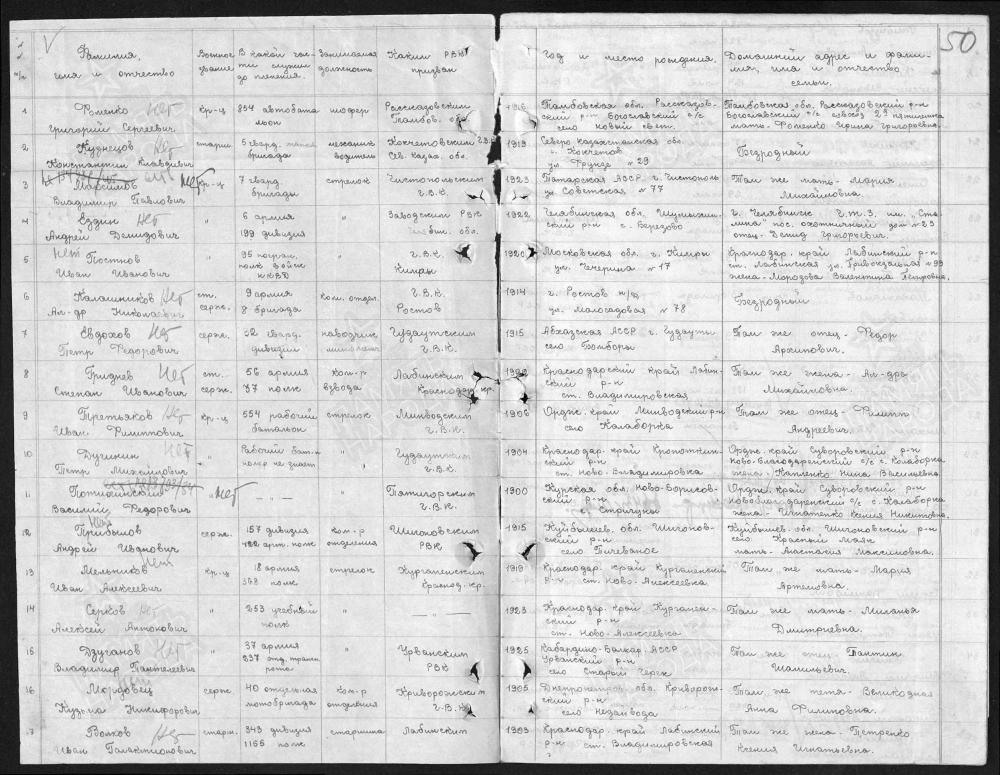 50
№ п/п
Фамилия, имя и отчество
Военное звание
В какой части служил до пленения.
Занимаемая должность
Каким РВК призван
Год и место рождения.
Домашний адрес и фамилия, имя и отчество семьи.
1
Фоменко Нет
Григорий Сергеевич.
кр-ц
854 автобатальон
шофер
Рассказовским
Тамбов. обл.
1916
Тамбовская обл. Рассказовский р-н Богословский с/с
село Новый свет.
Тамбовская обл. Рассказовский р-н
Богословский с/с колхоз 2я пятилетка
мать - Фоменко Ирина Григорьевна.
2
Кузнецов Нет
Константин Клавдиевич
старш.
5 гвард. танков.
бригада
механик
водитель
Кокчетовским
Сев. Казах. обл.
1919
Северо Казахстанская обл.
г. Кокчетов
ул. Фрунзе № 29
Безродный
3
Марсимов нет
Владимир Павлович
кр-ц
7 гвард.
бригады
стрелок
Чистопольским
Г.В.К.
1923
Татарская АССР г. Чистополь
ул. Советская № 77
Там же мать - Мария
Михайловна.
4
Ездин Нет
Андрей Демидович
"
6 армия
199 дивизия
"
Заводским РВК
Челябин. обл.
1922
Челябинская обл. Шумихинский р-н с. Березово
г. Челябинск Ч.Т.З. им. "Сталина" пос. охотничий дом № 23
отец - Демид Григорьевич.
5
Нет Постнов
Иван Иванович
"
95 погран.
полк войск
НКВД
"
Г.В.К.
Кимры
1920
Московская обл. г. Кимры
ул. Чичерина № 17
Краснодар. край Лабинский р-н
ст. Лабинская ул. Привокзальная № 99
жена - Морозова Валентина Петровна.
6
Калашников Нет
Ал-др Николаевич
ст.
серж.
9 армия
8 бригада
ком. отдел.
Г.В.К.
Ростов
1914
г. Ростов н/Д
ул. Малосадовая № 78
Безродный
7
Евдохов Нет
Петр Федорович
серж.
32 гвард.
дивизии
наводчик
Гудаутским
Г.В.К.
1915
Абхазская АССР г. Гудауты
село Бомборы
Там же отец - Федор
Архипович.
8
Гриднев Нет
Степан Иванович
ст.
серж.
56 армия
37 полк
ком-р
взвода
Лабинским
Краснодар. кр.
Краснодарский край Лабинский р-н
ст. Владимировская
Там же жена - Ал-дра
Михайловна.
9
Третьяков Нет
Иван Филиппович
кр-ц
554 рабочий
батальон
стрелок
Минводским
Г.В.К.
1906
Ордж. край Минводский р-н
село Калаборка
Там же отец - Филипп
Андреевич.
10
Дугинин Нет
Петр Михайлович
"
Рабочий бат-н
номер не знает
"
Гудаутским
Г.В.К.
1904
Краснодар. край Кропоткинский р-н
ст. Ново-Владимировка
Ордж. край Суворовский р-н
Ново-Благодаренский с/с с. Калаборка
жена - Капленко Нина Васильевна
11
Потишинский
Василий Федорович
" нет
— " —
"
Пятигорским
Г.В.К.
1900
Курская обл. Ново-Борисовский р-н
с. Стригуны
Ордж. край Суворовский р-н
Ново-Благодаренский с/с с. Калаборка
жена - Игнатенко Ксения Никитовна.
12
Нет
Прибылов
Андрей Иванович
серж.
157 дивизия
422 арт. полк
ком-р
отделения
Шигоновским
РВК
1915
Куйбышев. обл. Шигоновский р-н
село Бичеваное
Куйбышев. обл. Шигоновский р-н
село Красный маяк
мать - Анастасия Максимовна.
13
Мельников Нет
Иван Алексеевич
кр-ц
18 армия
368 полк
стрелок
Курганенским
Краснод. кр.
1919
Краснодар. край Курганенский
р-н ст. Ново-Алексеевка
Там же мать - Мария
Артемовна.
14
Серков Нет
Алексей Антонович
"
253 учебный
полк
"
— " —
1923
Краснодар. край Курганенский р-н
ст. Ново-Алексеевка
Там же мать - Миланья
Дмитриевна.
15
Дзуганов Нет
Владимир Пантелеевич
"
37 армия
237 отд. транс.
рота
"
Урванским
РВК
1925
Кабардино-Балкар. АССР
Урванский р-н
село Старый Черек
Там же отец - Пантин
Шамильевич.
16
Мордовец
Кузьма Никифорович
серж.
40 отдельная
мотобригада
ком-р
отделения
Криворожским
Г.В.К.
1905
Днепропетров. обл. Криворожский р-н
село Недайвода
Там же тетя - Великодная
Анна Филиповна.
17
Волков Нет
Иван Галактионович
старш.
343 дивизия
1155 полк
старшина
Лабинским
1903
Краснодар. край Лабинский
р-н ст. Владимировская
Там же жена - Петренко
Ксения Игнатьевна.